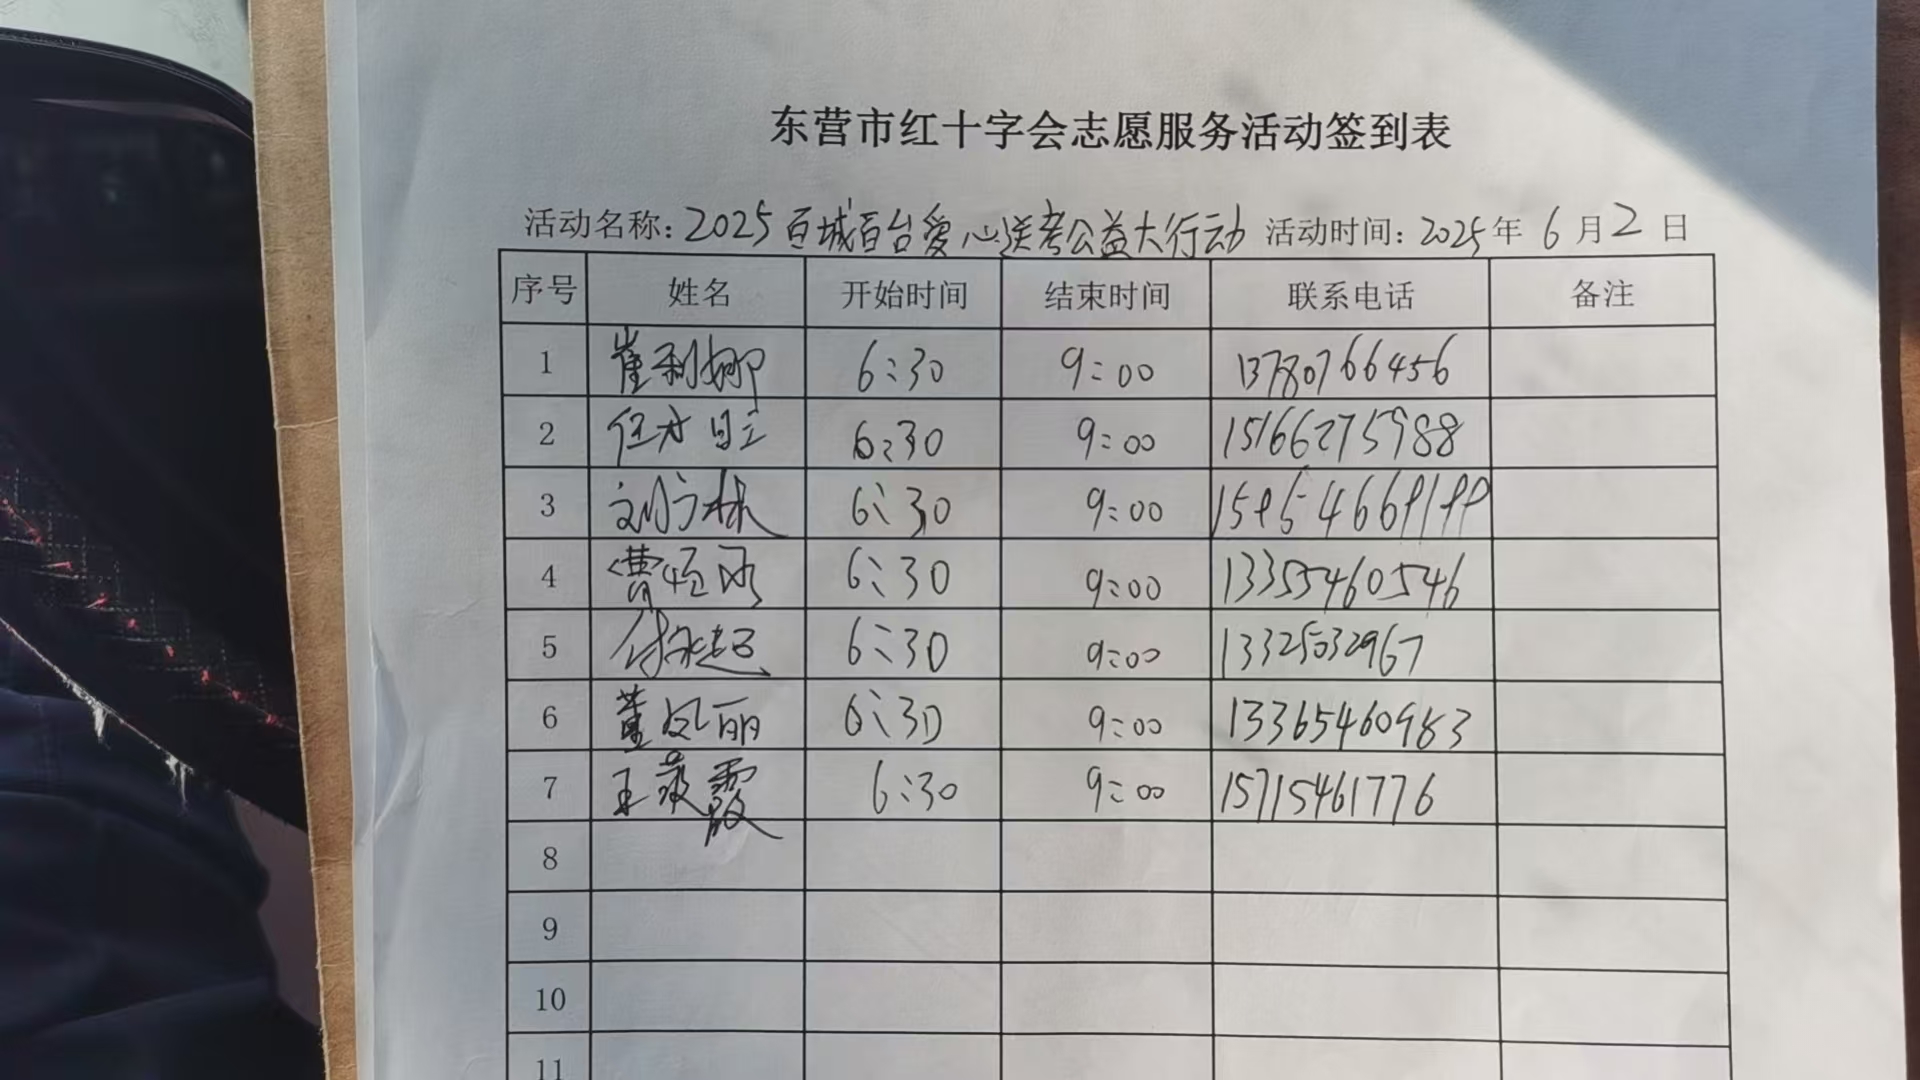 东营市红十字会志愿服务活动签到表
活动名称：2025百城百台爱心送考公益大行动 活动时间：2025年6月2日
序号 姓名 开始时间 结束时间 联系电话 备注
1 崔利娜 6:30 9:00 13780766456
2 6:30 9:00 15166275988
3 刘方林 6:30 9:00
4 曹恒 6:30 9:00 13355460546
5 付永超 6:30 9:00 13325032967
6 董凤丽 6:30 9:00 13365460983
7 王霞 6:30 9:00 15715461776
8
9
10
11